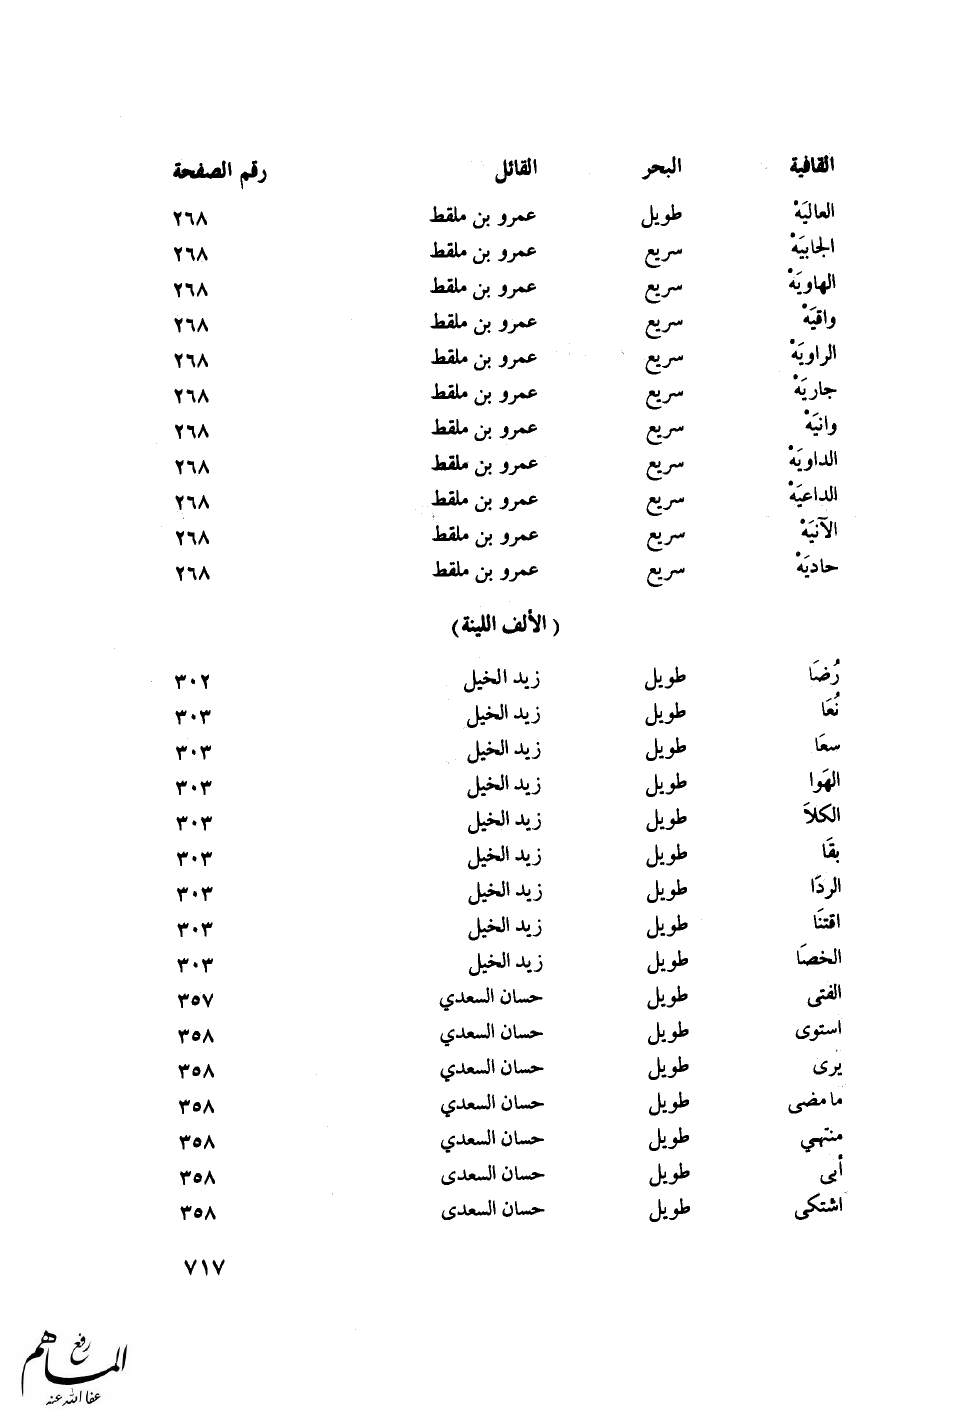 القافية البحر القائل رقم الصفحة
العاليَهْ طويل عمرو بن ملقط ٢٦٨
الجابيَهْ سريع عمرو بن ملقط ٢٦٨
الهاويَهْ سريع عمرو بن ملقط ٢٦٨
واقيَهْ سريع عمرو بن ملقط ٢٦٨
الراويَهْ سريع عمرو بن ملقط ٢٦٨
جاريَهْ سريع عمرو بن ملقط ٢٦٨
وانيَهْ سريع عمرو بن ملقط ٢٦٨
الداويَهْ سريع عمرو بن ملقط ٢٦٨
الداعيَهْ سريع عمرو بن ملقط ٢٦٨
الآنيَهْ سريع عمرو بن ملقط ٢٦٨
حاديَهْ سريع عمرو بن ملقط ٢٦٨
(الألف اللينة)
رُضَا طويل زيد الخيل ٣٠٢
نُعَا طويل زيد الخيل ٣٠٣
سعَا طويل زيد الخيل ٣٠٣
الهَوا طويل زيد الخيل ٣٠٣
الكلاَ طويل زيد الخيل ٣٠٣
بقَا طويل زيد الخيل ٣٠٣
الردَا طويل زيد الخيل ٣٠٣
اقتنَا طويل زيد الخيل ٣٠٣
الخصَا طويل زيد الخيل ٣٠٣
الفتى طويل حسان السعدي ٣٥٧
استوى طويل حسان السعدي ٣٥٨
يرى طويل حسان السعدي ٣٥٨
مامضى طويل حسان السعدي ٣٥٨
منتهي طويل حسان السعدي ٣٥٨
أبى طويل حسان السعدى ٣٥٨
اشتكى طويل حسان السعدى ٣٥٨
٧١٧
رفع
المساهم
عفا الله عنه